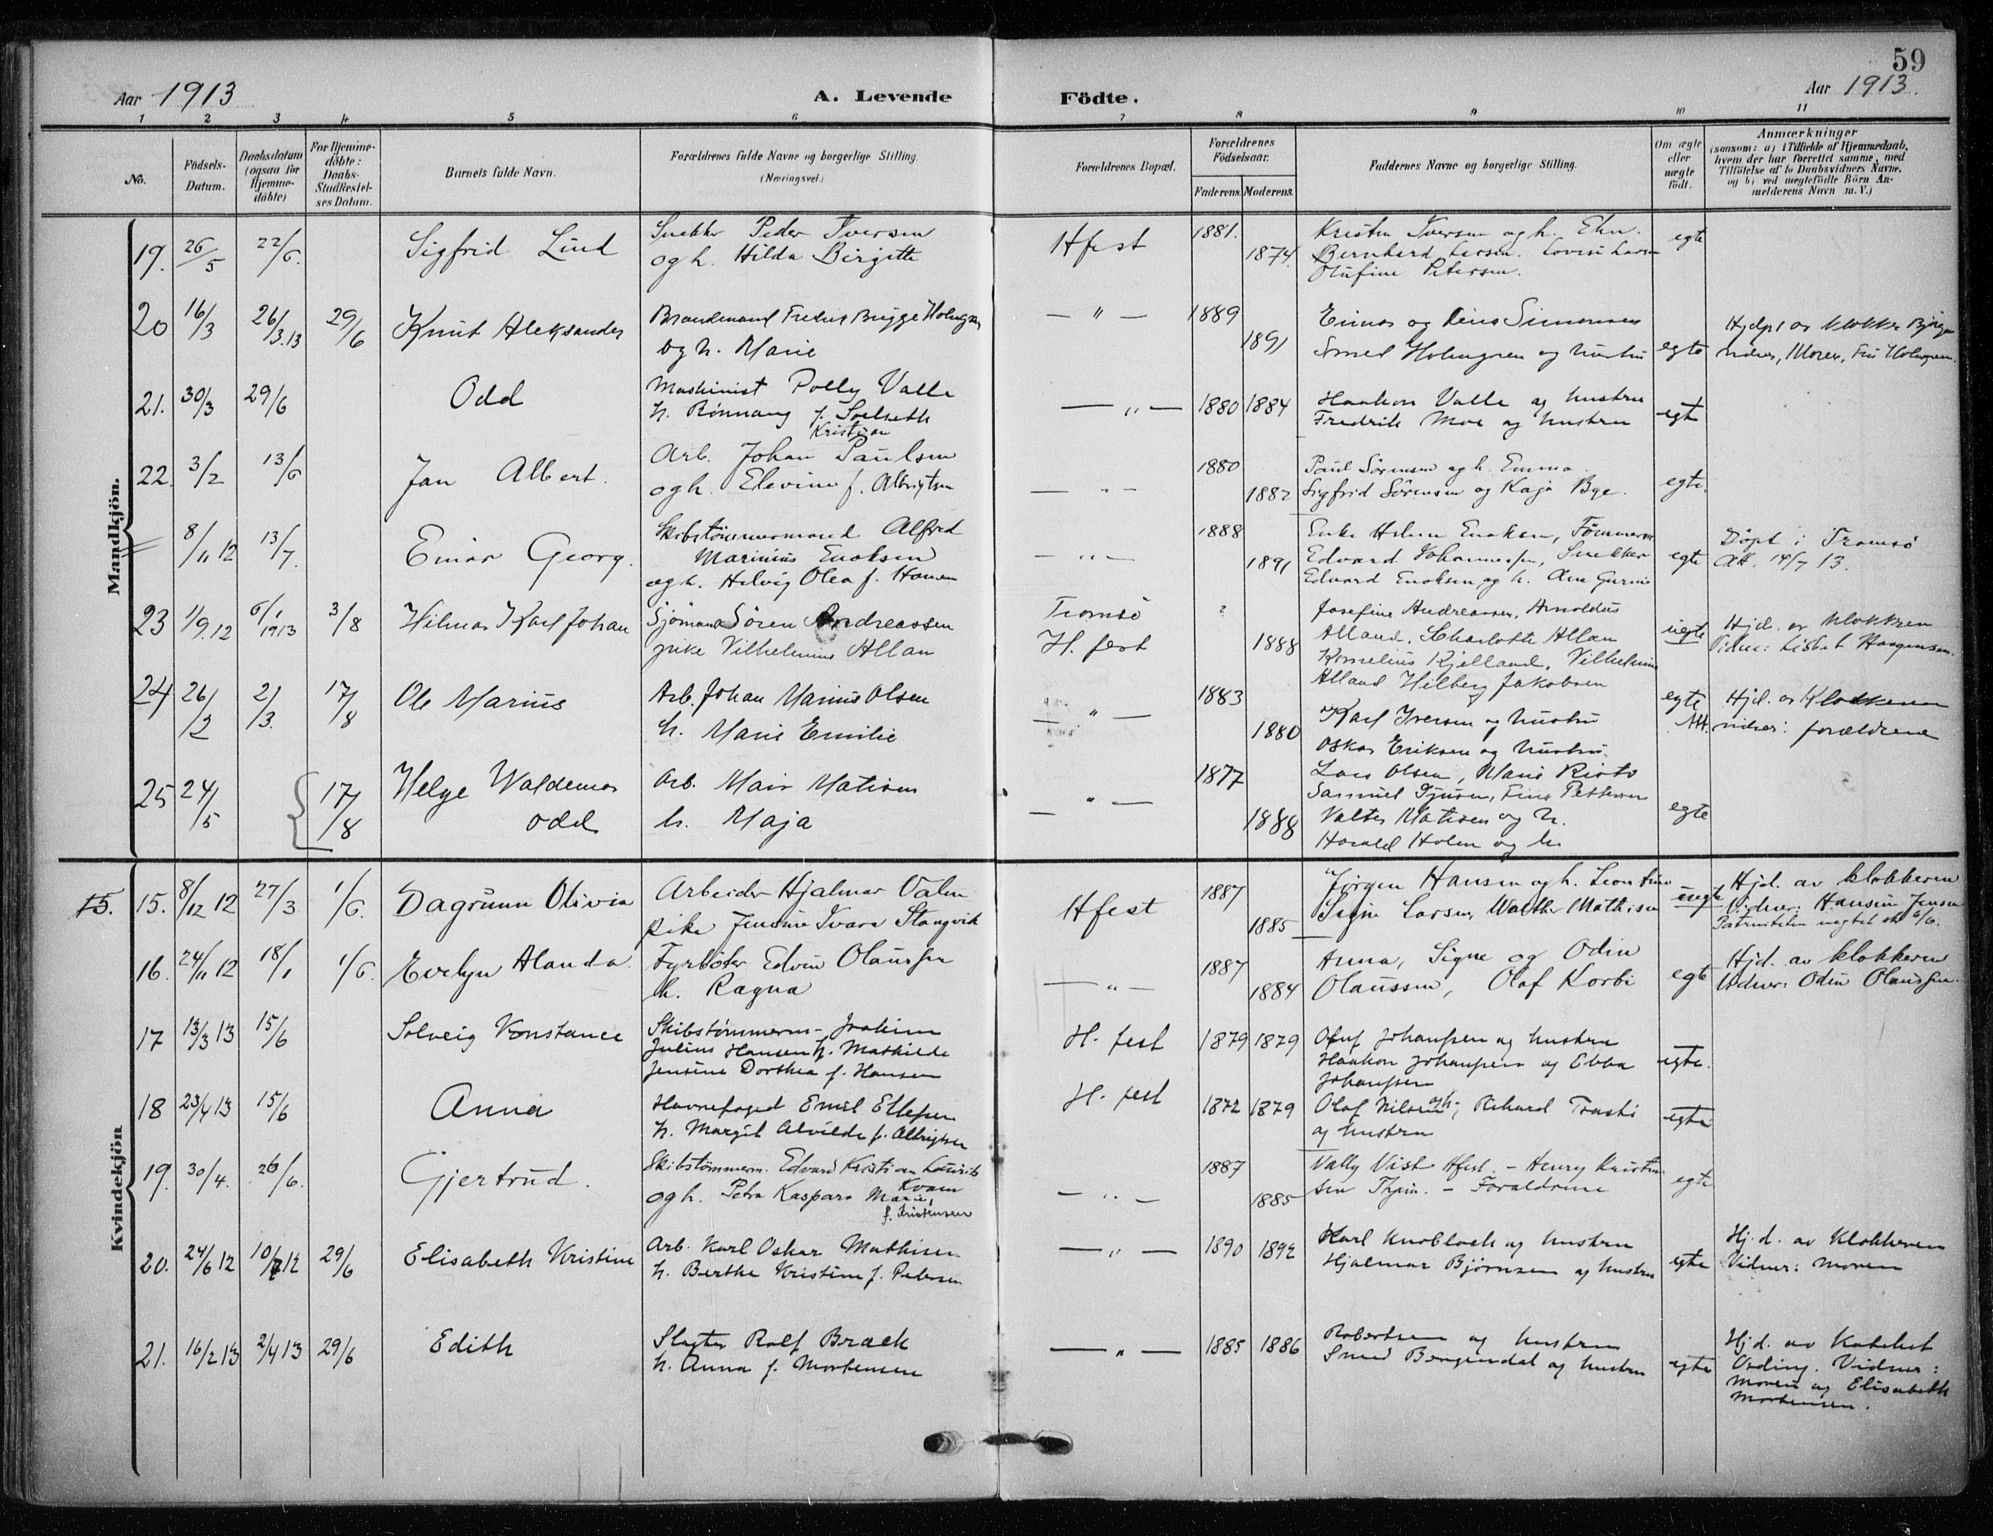 59
Aar 1913
A. Levende
Födte.
Aar 1913.
1 2 3 4 5 6 7 8 9 10 11
No.
Födsels-Datum.
Daabsdatum (ogsaa for Hjemme-döbte)
For Hjemme-döbte: Daabs-Stadfæstel-ses Datum.
Barnets fulde Navn.
Forældrenes fulde Navne og borgerlige Stilling.
(Næringsvei.)
Forældrenes Bopæl.
Forældrenes Födselsaar.
Faderens. Moderens.
Faddernes Navne og borgerlige Stilling.
Om ægte eller uægte födt.
Anmærkninger
(saasom: a) i Tilfælde af Hjemmedaab,
hvem der har forrettet samme, med
Tilföielse af to Daabsvidners Navne,
og b) ved uægtefödte Börn An-
melderens Navn m. V.)
Mandkjön.
19. 26/5 22/6. Sigfrid Lind
Snekker Peder Iversen
og h. Hilda Birgitte
Hfest 1881. 1874.
Kristen Iversen og h.
Bernhard Larsen.
Olufine Petersen.
egte
20 16/3 26/3.13 29/6 Knut Aleksander
Brandmand Brygge Holmgren
og h. Marie
— " — 1889 1891
Einar og Simonsen
Smed Holmgren og hustru
egte
Hjdpt av klokker
vidner, Moren, Holmgren.
21. 30/3 29/6 Odd
Maskinist Polly Valle
h. Rønnaug f. Solseth
— " — 1880 1884
Haakon Valle og hustru
Fredrik Moe og hustru
egte
22. 3/2 13/6 Jan Albert.
Kristian
Arb. Johan Paulsen
og h. Elevine f. Albrigtsen
— " — 1880 1882
Paul Sørensen og h. Emma.
Sigfrid Sørensen og Kaja Bye.
egte.
8/11 12 13/7 Einar Georg.
Skibstømmermand Alfred
Marinius Enoksen
og h. Helvig Olea f. Hansen
— " — 1888 1891
Enke Enoksen, Tømmerm
Edvard Johannessen, Snekker
Edvard Enoksen og h.
egte
Døpt i Tromsø
Att. 14/7 13.
23 1/9.12 6/1 1913 3/8 Hilmar Karl Johan
Sjømand Søren Andreassen
pike Vilhelmine Allan
Tromsø
H. fest
? 1888
Josefine Andreassen, Arnoldus
Alland, Charlotte Allan
Kornelius Kjelland, Vilhelmine
Alland Hilberg Jakobsen
uegte
Hjd. av klokkeren
Vidner: Lisbet Haagensen.
24 26/2 2/3. 17/8 Ole Marius
Arb. Johan Marius Olsen
h. Marie Emilie
— " — 1883 1880
Karl Iversen og hustru
Oskar Eriksen og hustru.
egte
Att.
Hjd. av Klokkeren
vidner: forældrene
25 24/5 17/8 Helge Waldemar
Odd
Arb. Matisen
h. Maja
— " — 1877 1888
Lars Olsen, Marie
Samuel Pettersen
Valter Matisen og h.
Harald Holm og h.
egte
Kvindekjön
15. 15. 8/12 12 27/3 1/6. Dagrunn Olivia
Arbeider Hjalmar Valm
pike Stangvik
Hfest 1887 1885
Jørgen Hansen og h.
Larsen, Walther Mathisen
uegte
Hjd. av klokkeren
Vidner: Hansine Jensen
16. 24/11 12 18/1 1/6. Evelyn Alanda
Fyrbøter Edvin Olaussen
h. Ragna
— " — 1887 1884
Anna, Signe og Odin
Olaussen, Olaf Korbi
egte
Hjd. av klokkeren
Vidner: Odin Olaussen.
17 13/3 13 15/6 Solveig Konstance
Skibstømmerm. Joakim
Julius Hansen h. Mathilde
Jensine Dorthea f. Hansen
H. fest 1879 1879
Oluf Johanssen og hustru
Haakon Johanssen og Ebba
Johanssen
egte.
18 23/4 13 15/6 Anna
Havnefoged Emil Ellefsen
h. Margit Alvilde f. Albrigtsen
H. fest 1872 1879
Olaf Nilsen og h., Rikard Trasti
og hustru
egte
19. 30/4. 26/6. Gjertrud.
Skibstømmerm. Edvard Kristian
Kvam
og h. Petra Kaspara Marie,
f. Kristensen
— " — 1887 1885
Vally Vist Hfest. – Henry Kristen-
sen – Foraldrene
egte
20. 24/6 12 10/7 12 29/6 Elisabeth Kristine
Arb. Karl Oskar Mathisen
h. Berthe Kristine f. Pedersen
— " — 1890 1892
Karl Knoblock og hustru
Hjalmar Bjørnsen og hustru
egte
Hj.d. av Klokkeren
Vidner: moren
21. 16/2 13 2/4 13 29/6 Edith
Slagter Rolf Braek
h. Anna f. Mortensen
— " — 1885 1886
Robertsen og hustru
Smed Bergendal og hustru
egte
Hj.d. av Kateket
Ording. Vidner:
Moren og Elisabeth
Mortensen.